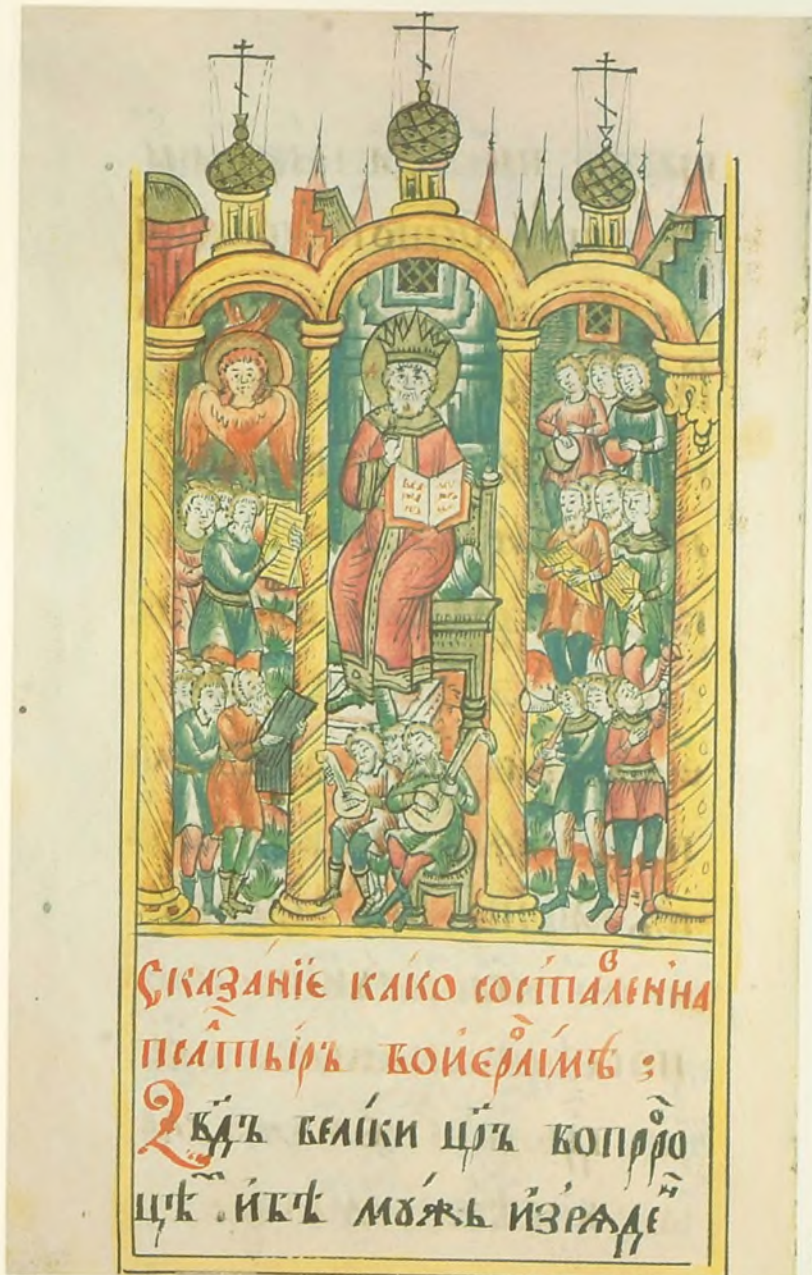 Сказа́нїе како соста́вленна
пса́лтырь вои͑ерⷭ҇ли́мѣ :
Дв҃дъ вели́ки цр҃ь вопрⷪ҇ро
цѣⷯ . и҆бѣ̀ мꙋ́жь и҆зрѧ́деⷩ҇